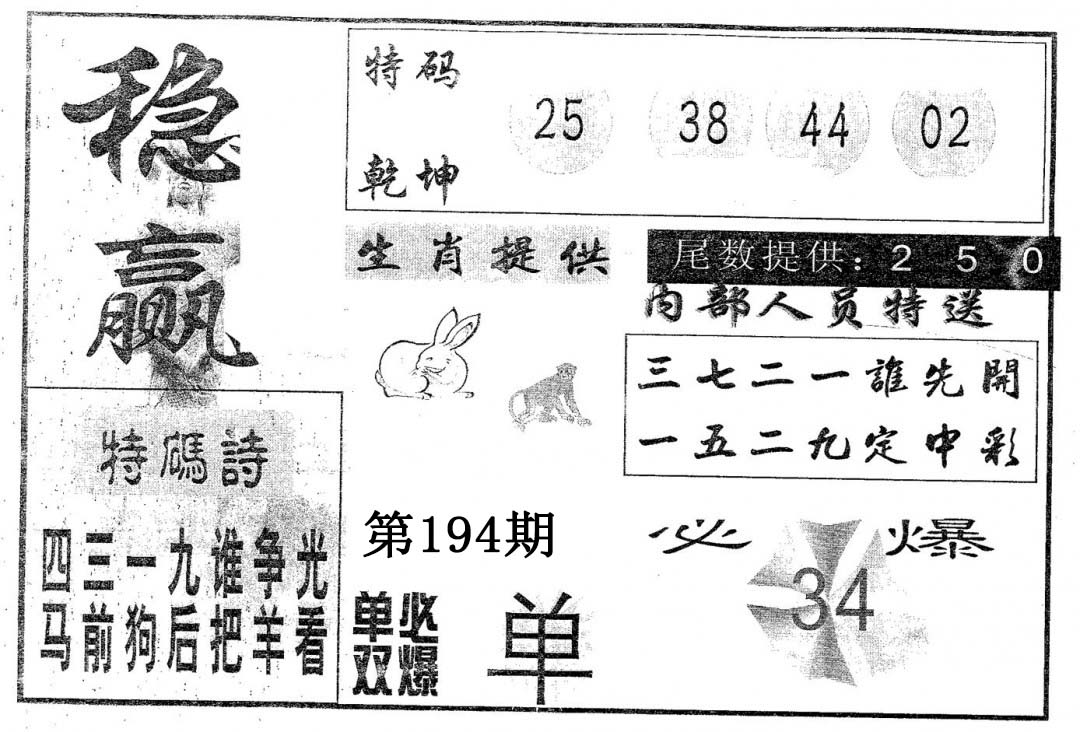 稳赢
特码
乾坤
25 38 44 02
生肖提供
尾数提供：2 5 0
内部人员特送
三七二一誰先開
一五二九定中彩
特碼詩
四三一九谁争光
马前狗后把羊看
第194期
必爆
34
单必
双爆
单